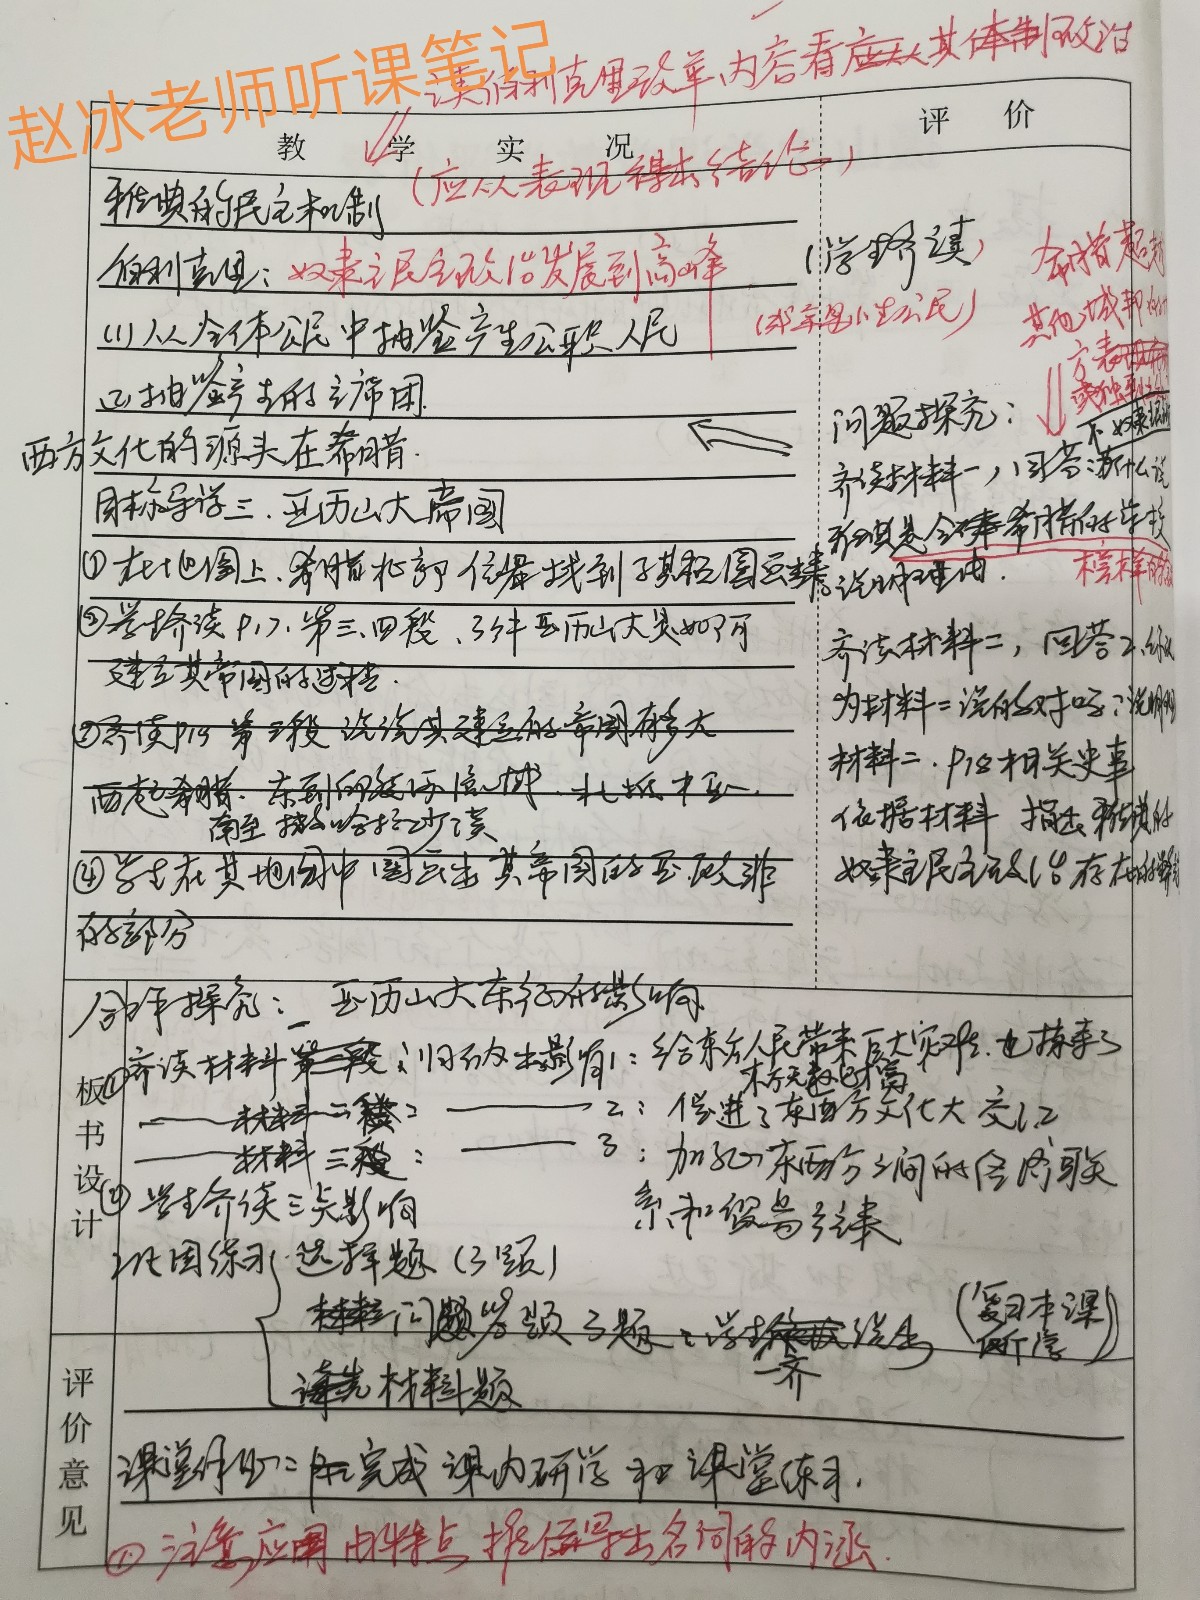 赵冰老师听课笔记
读伯利克里改革内容看应从其体制政治
教学实况
评价
(应从表现得出结论)
雅典的民主机制
伯利克里：奴隶主民主政治发展到高峰
(学生齐读)
(1)从全体公民中抽签产生公职人员
(2)抽签产生的主席团.
西方文化的源头在希腊.
目标导学三.亚历山大帝国
①在地图上.希腊北部位置找到了其程圈画出来
②学生齐读P17.第三.四段.了解亚历山大是如何
建立其帝国的过程.
③齐读P18第三段说说其建立的帝国有多大
西起希腊.东到印度河流域.北抵中亚.
南至撒哈拉沙漠
④学生在其地图中圈画出其帝国的亚欧非
的部分
希腊超越
其他城邦的地
方表现在
问题探究：
齐读材料一,回答:为什么说
雅典是全体希腊的学校
说明理由.
榜样的
齐读材料二,回答2.你认
为材料二说的对吗?说明理
材料二.P18相关史事
依据材料 指出雅典的
奴隶主民主政治存在的弊
板书设计
合作探究：亚历山大东征的影响
①齐读材料第一段;归纳出影响1：给东方人民带来巨大灾难.也掠夺了
东方无数的财富
材料二段： 2：促进了东西方文化大交汇
材料三段： 3：加强了东西方之间的经济联
系和贸易往来
②学生齐读三点影响
巩固练习.选择题(3题)
材料问题答题3题：学生一齐说出
(复习本课所学)
读先材料题
评价意见
课堂作业：完成课内研学和课堂练习.
①.注意应用由特点推倒导出名词的内涵.